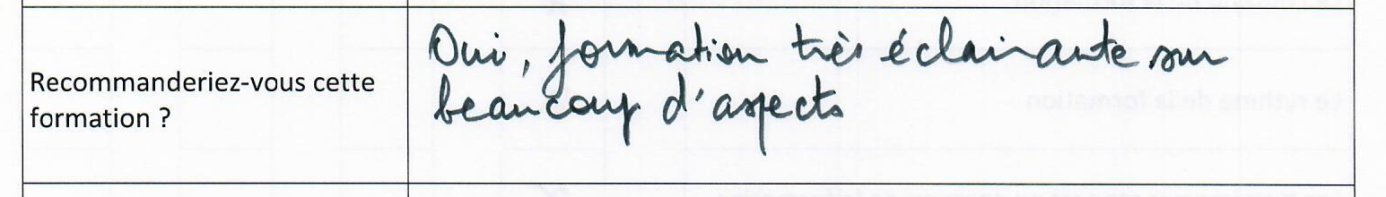 Recommanderiez-vous cette
formation ?
Oui, formation très éclairante sur
beaucoup d'aspects